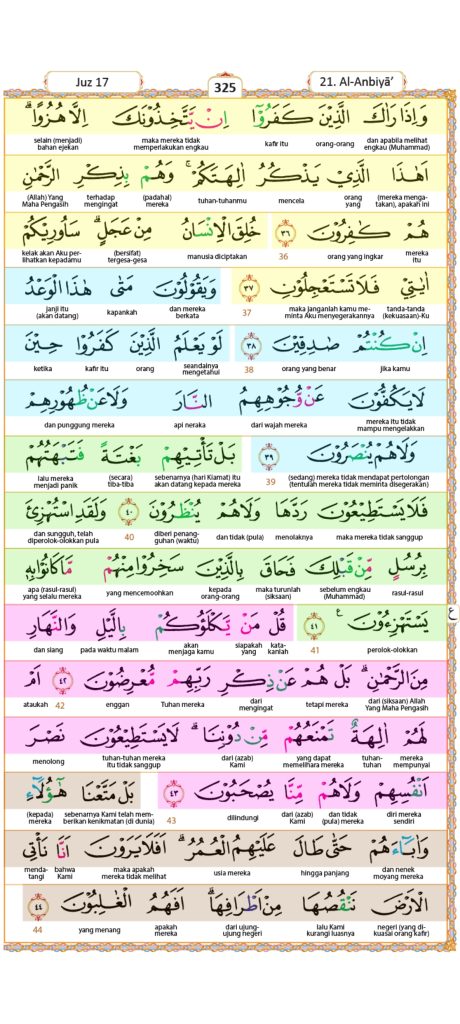 Juz 17
325
21. Al-Anbiyā'
وَاِذَا رَاٰكَ الَّذِيْنَ كَفَرُوْٓا اِنْ يَّتَّخِذُوْنَكَ اِلَّا هُزُوًاۗ
dan apabila melihat engkau (Muhammad) orang-orang kafir itu maka mereka tidak memperlakukan engkau selain (menjadi) bahan ejekan
اَهٰذَا الَّذِيْ يَذْكُرُ اٰلِهَتَكُمْۚ وَهُمْ بِذِكْرِ الرَّحْمٰنِ
(mereka mengatakan), apakah ini orang yang mencela tuhan-tuhanmu (padahal) mereka terhadap mengingat (Allah) Yang Maha Pengasih
هُمْ كٰفِرُوْنَ ٣٦ خُلِقَ الْاِنْسَانُ مِنْ عَجَلٍۗ سَاُورِيْكُمْ
mereka itu orang yang ingkar 36 manusia diciptakan (bersifat) tergesa-gesa kelak akan Aku perlihatkan kepadamu
اٰيٰتِيْ فَلَا تَسْتَعْجِلُوْنِ ٣٧ وَيَقُوْلُوْنَ مَتٰى هٰذَا الْوَعْدُ
tanda-tanda (kekuasaan)-Ku maka janganlah kamu meminta Aku menyegerakannya 37 dan mereka berkata kapankah janji itu (akan datang)
اِنْ كُنْتُمْ صٰدِقِيْنَ ٣٨ لَوْ يَعْلَمُ الَّذِيْنَ كَفَرُوْا حِيْنَ
jika kamu orang yang benar 38 seandainya mengetahui orang kafir itu ketika
لَا يَكُفُّوْنَ عَنْ وُّجُوْهِهِمُ النَّارَ وَلَا عَنْ ظُهُوْرِهِمْ
mereka itu tidak mampu mengelakkan dari wajah mereka api neraka dan punggung mereka
وَلَا هُمْ يُنْصَرُوْنَ ٣٩ بَلْ تَأْتِيْهِمْ بَغْتَةً فَتَبْهَتُهُمْ
(sedang) mereka tidak mendapat pertolongan (tentulah mereka tidak meminta disegerakan) 39 sebenarnya (hari Kiamat) itu akan datang kepada mereka (secara) tiba-tiba lalu mereka menjadi panik
فَلَا يَسْتَطِيْعُوْنَ رَدَّهَا وَلَا هُمْ يُنْظَرُوْنَ ٤٠ وَلَقَدِ اسْتُهْزِئَ
maka mereka tidak sanggup menolaknya dan tidak (pula) diberi penangguhan (waktu) 40 dan sungguh, telah diperolok-olokkan pula
بِرُسُلٍ مِّنْ قَبْلِكَ فَحَاقَ بِالَّذِيْنَ سَخِرُوْا مِنْهُمْ مَّا كَانُوْا بِهٖ
rasul-rasul sebelum engkau (Muhammad) maka turunlah (siksaan) kepada orang-orang yang mencemoohkan apa (rasul-rasul) yang selalu mereka
يَسْتَهْزِءُوْنَ ٤١ قُلْ مَنْ يَّكْلَؤُكُمْ بِالَّيْلِ وَالنَّهَارِ
perolok-olokkan 41 katakanlah siapakah yang akan menjaga kamu pada waktu malam dan siang
ع
مِنَ الرَّحْمٰنِۗ بَلْ هُمْ عَنْ ذِكْرِ رَبِّهِمْ مُّعْرِضُوْنَ ٤٢ اَمْ
dari (siksaan) Allah Yang Maha Pengasih tetapi mereka dari mengingat Tuhan mereka enggan 42 ataukah
لَهُمْ اٰلِهَةٌ تَمْنَعُهُمْ مِّنْ دُوْنِنَاۗ لَا يَسْتَطِيْعُوْنَ نَصْرَ
mereka mempunyai tuhan-tuhan yang dapat memelihara mereka dari (azab) Kami tuhan-tuhan mereka itu tidak sanggup menolong
اَنْفُسِهِمْ وَلَا هُمْ مِّنَّا يُصْحَبُوْنَ ٤٣ بَلْ مَتَّعْنَا هٰٓؤُلَاۤءِ
diri mereka sendiri dan tidak (pula) mereka dari (azab) Kami dilindungi 43 sebenarnya Kami telah memberikan kenikmatan (di dunia) (kepada) mereka
وَاٰبَاۤءَهُمْ حَتّٰى طَالَ عَلَيْهِمُ الْعُمُرُۗ اَفَلَا يَرَوْنَ اَنَّا نَأْتِى
dan nenek moyang mereka hingga panjang usia mereka maka apakah mereka tidak melihat bahwa Kami mendatangi
الْاَرْضَ نَنْقُصُهَا مِنْ اَطْرَافِهَاۗ اَفَهُمُ الْغٰلِبُوْنَ ٤٤
negeri (yang dikuasai orang kafir) lalu Kami kurangi luasnya dari ujung-ujung negeri apakah mereka yang menang 44